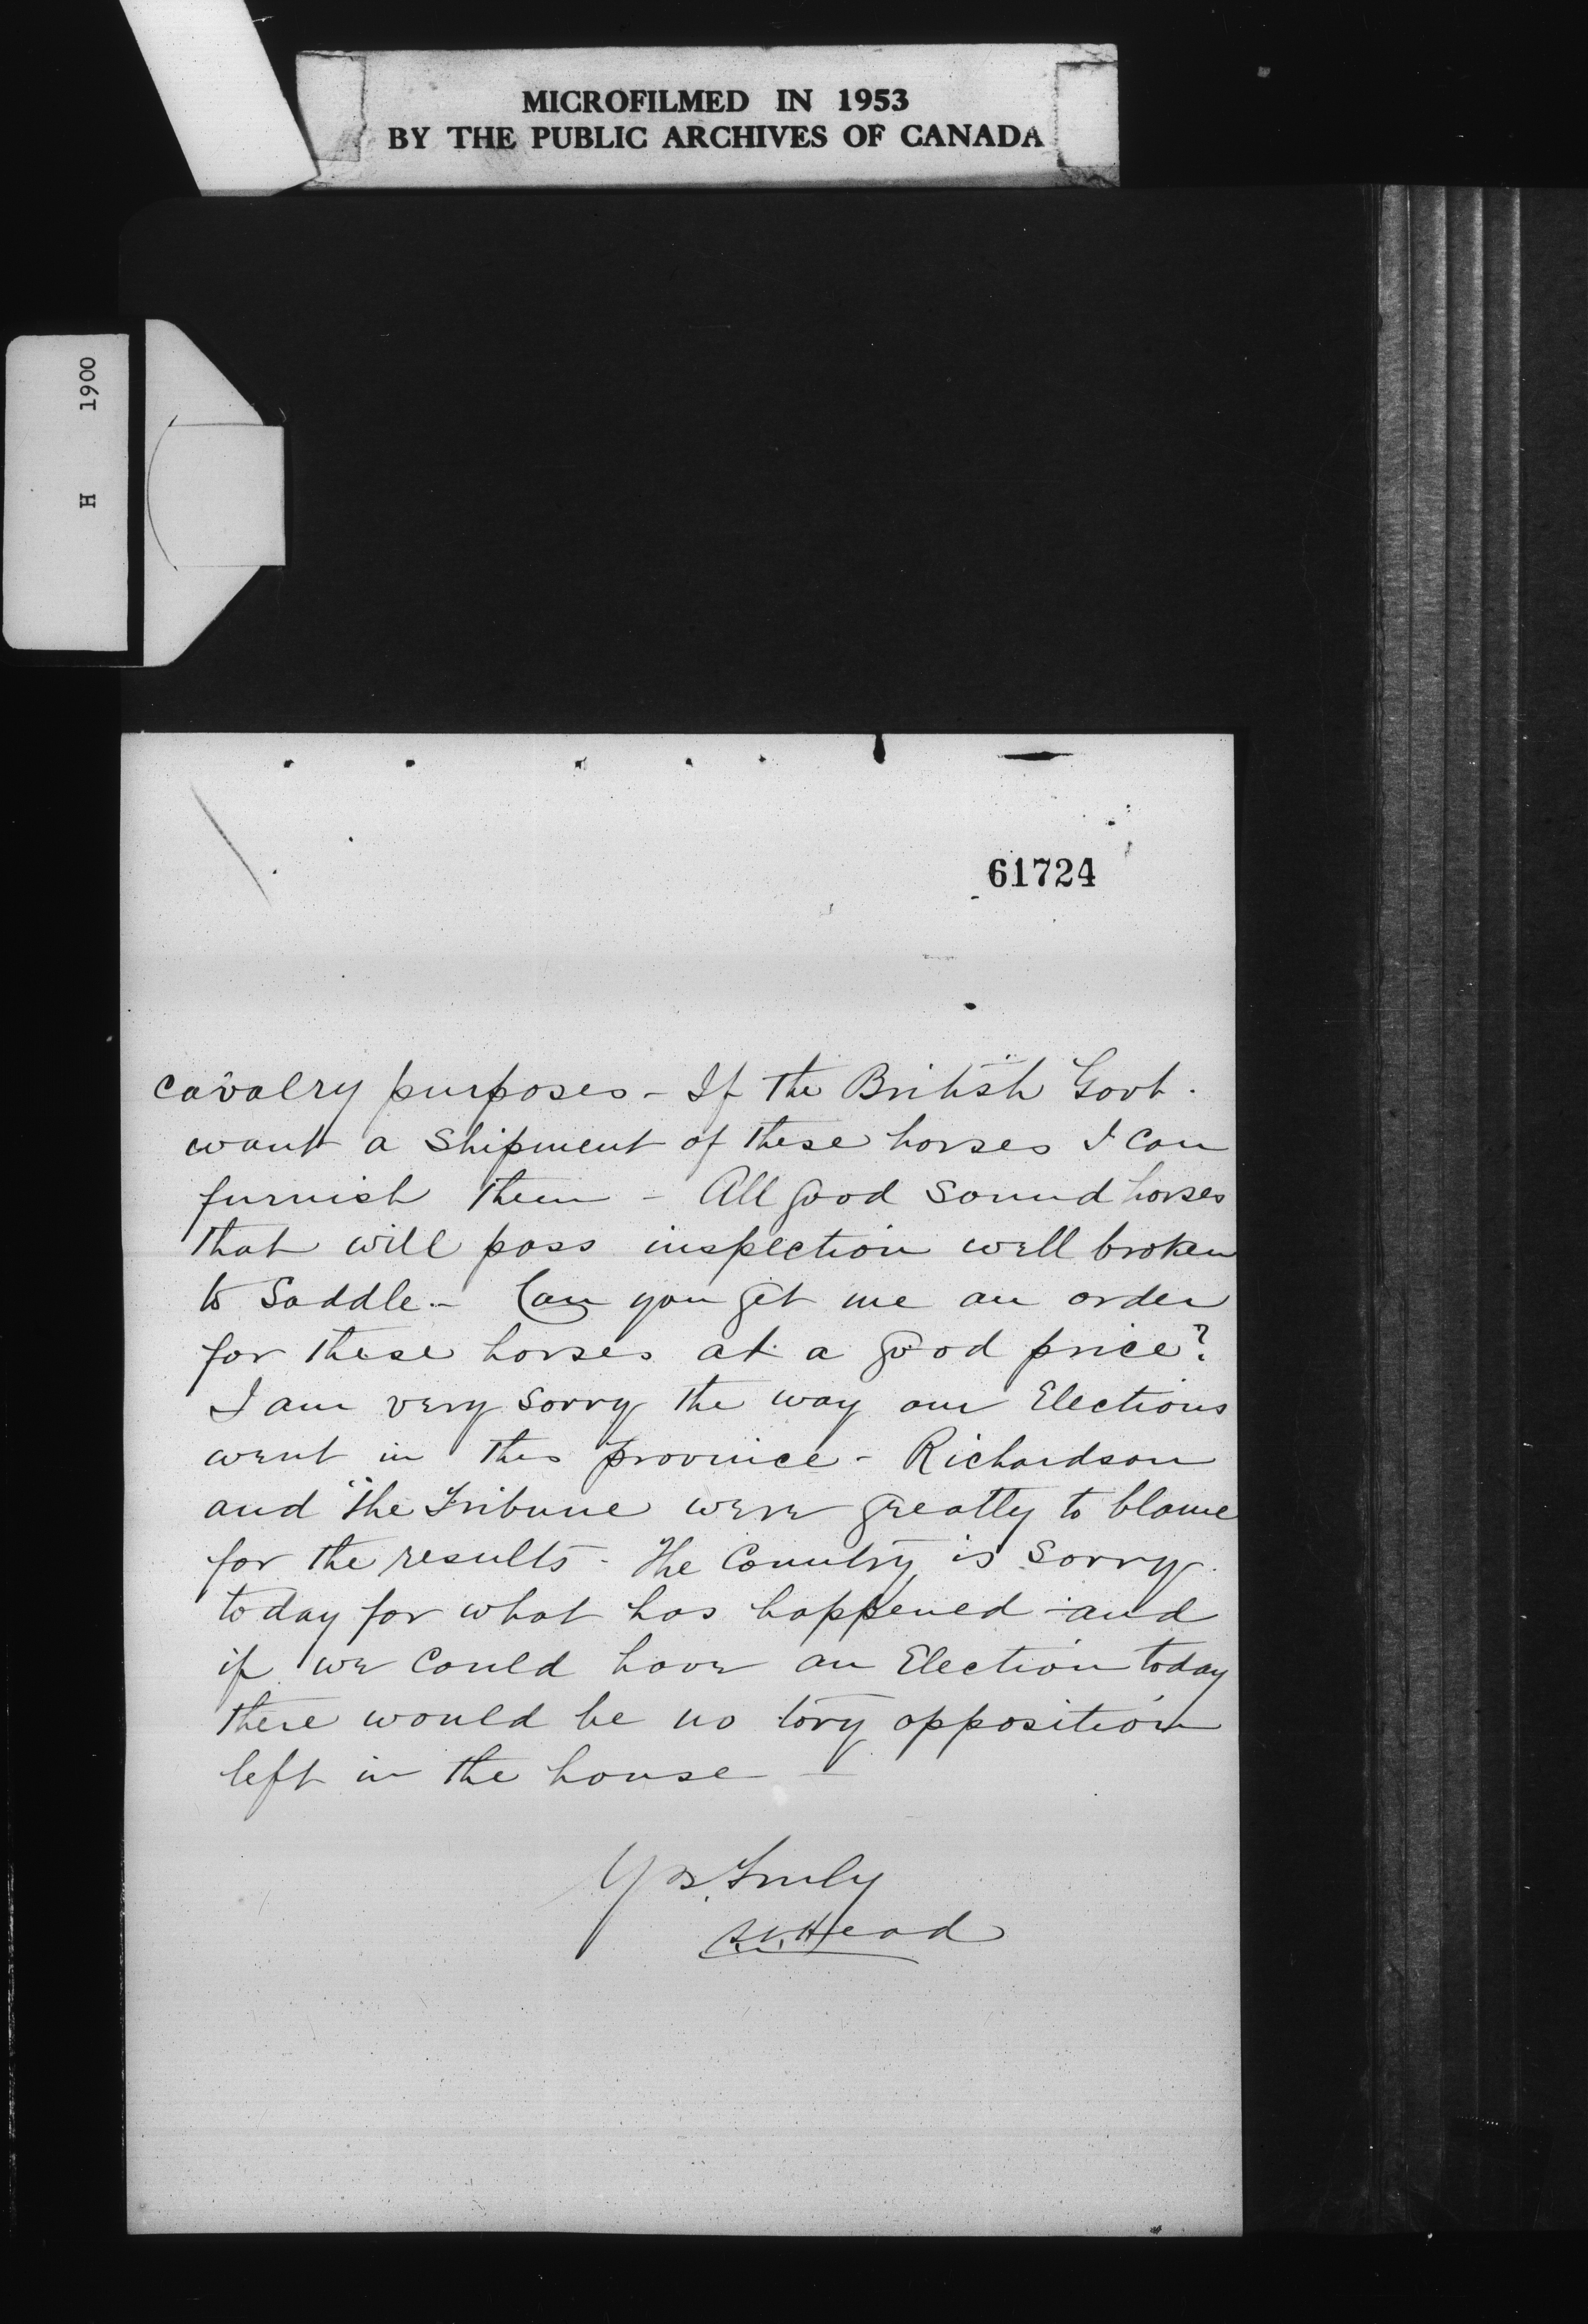 MICROFILMED IN 1953
BY THE PUBLIC ARCHIVES OF CANADA
H 1900
61724
cavalry purposes - If the British Govt.
want a Shipment of these horses I can
furnish them - All good sound horses
that will pass inspection well broken
to Saddle - Can you get me an order
for these horses at a good price?
I am very sorry the way our Elections
went in this province - Richardson
and the Tribune were greatly to blame
for the results - The Country is sorry
today for what has happened - and
if we could have an Election today
there would be no tory opposition
left in the house -
Yrs. Truly
Head